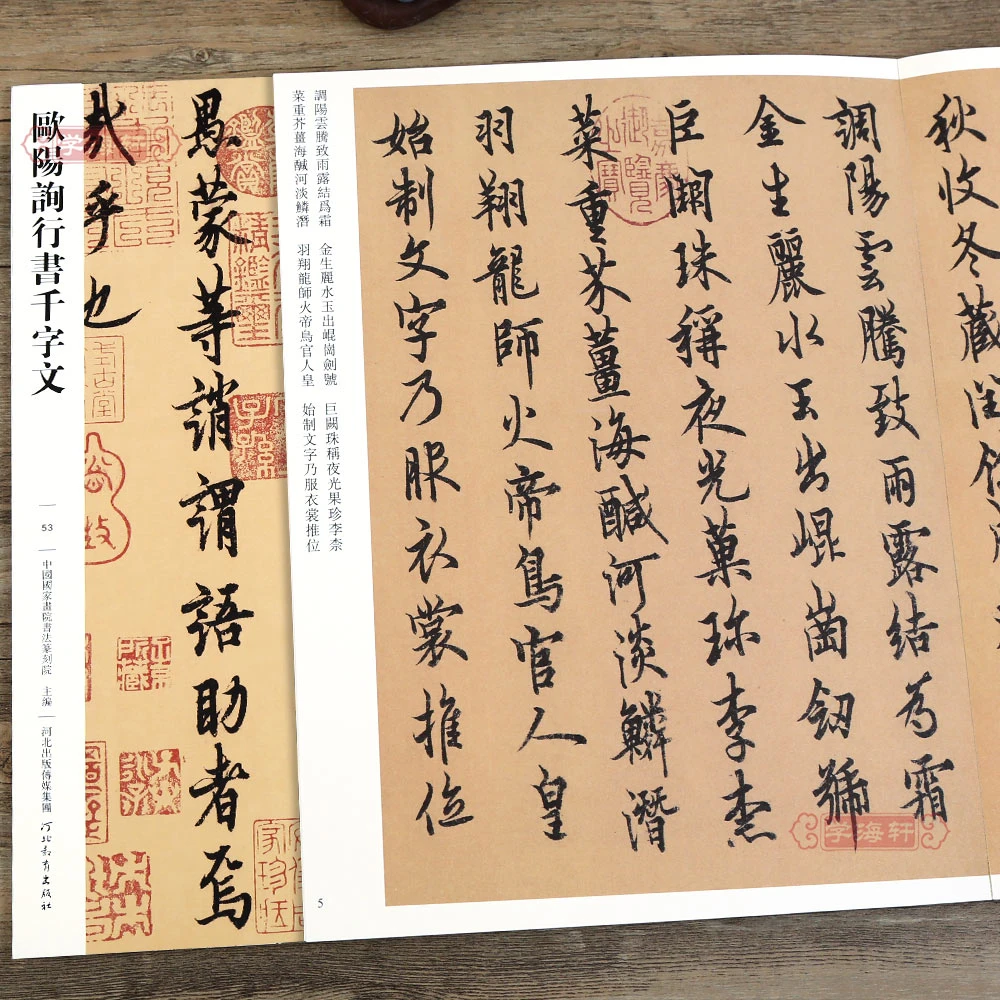 歐陽詢行書千字文
53
中國國家畫院書法篆刻院 主編
河北出版傳媒集團
河北教育出版社
愚蒙等誚謂語助者焉
哉乎也
調陽雲騰致雨露結爲霜 金生麗水玉出崐崗劍號 巨闕珠稱夜光果珍李柰
菜重芥薑海醎河淡鱗潛 羽翔龍師火帝鳥官人皇 始制文字乃服衣裳推位
秋收冬藏閏餘
調陽雲騰致雨露結為霜
金生麗水玉出崐崗劒號
巨闕珠稱夜光菓珎李柰
菜重芥薑海醎河淡鱗潛
羽翔龍師火帝鳥官人皇
始制文字乃服衣裳推位
5
字海轩